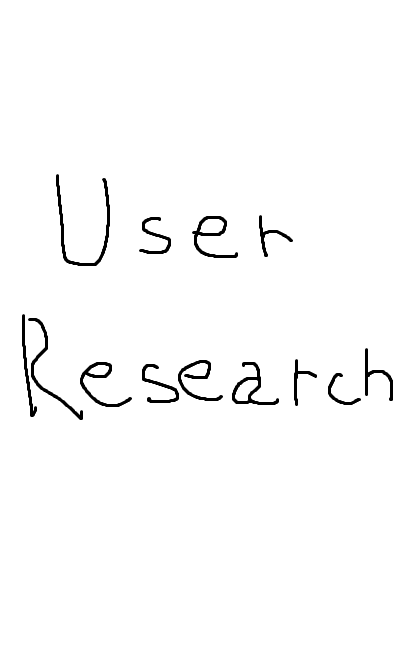 User
Research